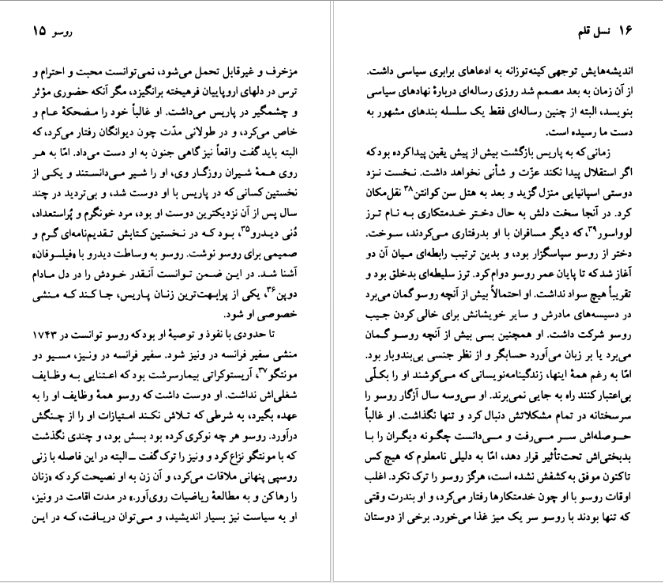 روسو ۱۵
مزخرف و غیرقابل تحمل می‌شود، نمی‌توانست محبت و احترام و
ترس در دلهای اروپاییان فرهیخته برانگیزد، مگر آنکه حضوری مؤثر
و چشمگیر در پاریس می‌داشت. او غالباً خود را مضحکهٔ عام و
خاص می‌کرد، و در طولانی مدّت چون دیوانگان رفتار می‌کرد، که
البته باید گفت واقعاً نیز گاهی جنون به او دست می‌داد. امّا به هر
روی همهٔ شیران روزگار وی، او را شیر می‌دانستند و یکی از
نخستین کسانی که در پاریس با او دوست شد، و بی‌تردید در چند
سال پس از آن نزدیکترین دوست او بود، مرد خونگرم و پُراستعداد،
دُنی دیدرو۳۵، بود که در نخستین کتابش تقدیم‌نامه‌ای گرم و
صمیمی برای روسو نوشت. روسو به وساطت دیدرو با «فیلسوفان»
آشنا شد. در این ضمن توانست آنقدر خودش را در دل مادام
دوپن۳۶، یکی از پرابهت‌ترین زنان پاریس، جا کند که منشی
خصوصی او شود.
تا حدودی با نفوذ و توصیهٔ او بود که روسو توانست در ۱۷۴۳
منشی سفیر فرانسه در ونیز شود. سفیر فرانسه در ونیز، مسیو دو
مونتگو۳۷، آریستوکراتی بیمارسرشت بود که اعتنایی به وظایف
شغلی‌اش نداشت. او دوست داشت که روسو همهٔ وظایف او را به
عهده بگیرد، به شرطی که تلاش نکند امتیازات او را از چنگش
درآورد. روسو هر چه نوکری کرده بود بسش بود، و چندی نگذشت
که با مونتگو نزاع کرد و ونیز را ترک گفت ــ البته در این فاصله با زنی
روسپی پنهانی ملاقات می‌کرد، و آن زن به او نصیحت کرد که «زنان
را رها کن و به مطالعهٔ ریاضیات روی‌آور.» در مدت اقامت در ونیز،
او به سیاست نیز بسیار اندیشید، و می‌توان دریافت، که در این
۱۶ نسل قلم
اندیشه‌هایش توجهی کینه‌توزانه به ادعاهای برابری سیاسی داشت.
از آن زمان به بعد مصمم شد روزی رساله‌ای دربارهٔ نهادهای سیاسی
بنویسد، البته از چنین رساله‌ای فقط یک سلسله بندهای مشهور به
دست ما رسیده است.
زمانی که به پاریس بازگشت بیش از پیش یقین پیدا کرده بود که
اگر استقلال پیدا نکند عزّت و شأنی نخواهد داشت. نخست نزد
دوستی اسپانیایی منزل گزید و بعد به هتل سن کوانتن۳۸ نقل‌مکان
کرد. در آنجا سخت دلش به حال دختر خدمتکاری به نام ترز
لوواسور۳۹، که دیگر مسافران با او بدرفتاری می‌کردند، سوخت.
دختر از روسو سپاسگزار بود، و بدین ترتیب رابطه‌ای میان آن دو
آغاز شد که تا پایان عمر روسو دوام کرد. ترز سلیطه‌ای بدخلق بود و
تقریباً هیچ سواد نداشت. او احتمالاً بیش از آنچه روسو گمان می‌برد
در دسیسه‌های مادرش و سایر خویشانش برای خالی کردن جیب
روسو شرکت داشت. او همچنین بسی بیش از آنچه روسو گمان
می‌برد یا بر زبان می‌آورد حسابگر و از نظر جنسی بی‌بندوبار بود.
امّا به رغم همهٔ اینها، زندگینامه‌نویسانی که می‌کوشند او را بکلّی
بی‌اعتبار کنند راه به جایی نمی‌برند. او سی‌وسه سال آزگار روسو را
سرسختانه در تمام مشکلاتش دنبال کرد و تنها نگذاشت. او غالباً
حوصله‌اش سر می‌رفت و می‌دانست چگونه دیگران را با
بدبختی‌اش تحت‌تأثیر قرار دهد، امّا به دلیلی نامعلوم که هیچ کس
تاکنون موفق به کشفش نشده است، هرگز روسو را ترک نکرد. اغلب
اوقات روسو با او چون خدمتکارها رفتار می‌کرد، و او بندرت وقتی
که تنها بودند با روسو سر یک میز غذا می‌خورد. برخی از دوستان